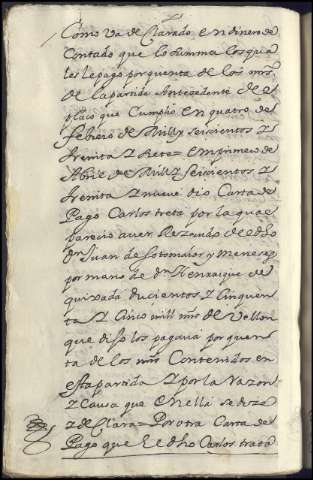 Como va de clarado en dinero de
Contado que lo summa los qua
les le pago por quenta de los mrs
de la partida Antecedente de el
plaço que Cumplio en quatro de
febrero de Mill y seiscientos y
treinta y siete = en primero de
Abril de Mill y seiscientos y
treinta y nueve dio Carta de
Pago Carlos treta por la qual
parecio aver Rezevido de el dho
Dn Juan de sotomaior y Meneses
por mano de Dn Henrrique de
quixada ducientos y Cinquen
ta y Cinco mill mrs de Vellon
que dijo los pagava por quen
ta de los mrs Contenidos en
esta partida y por la Razon
y Causa que en ella se dize
y de Clara = Por otra Carta de
Pago que el dho Carlos trata